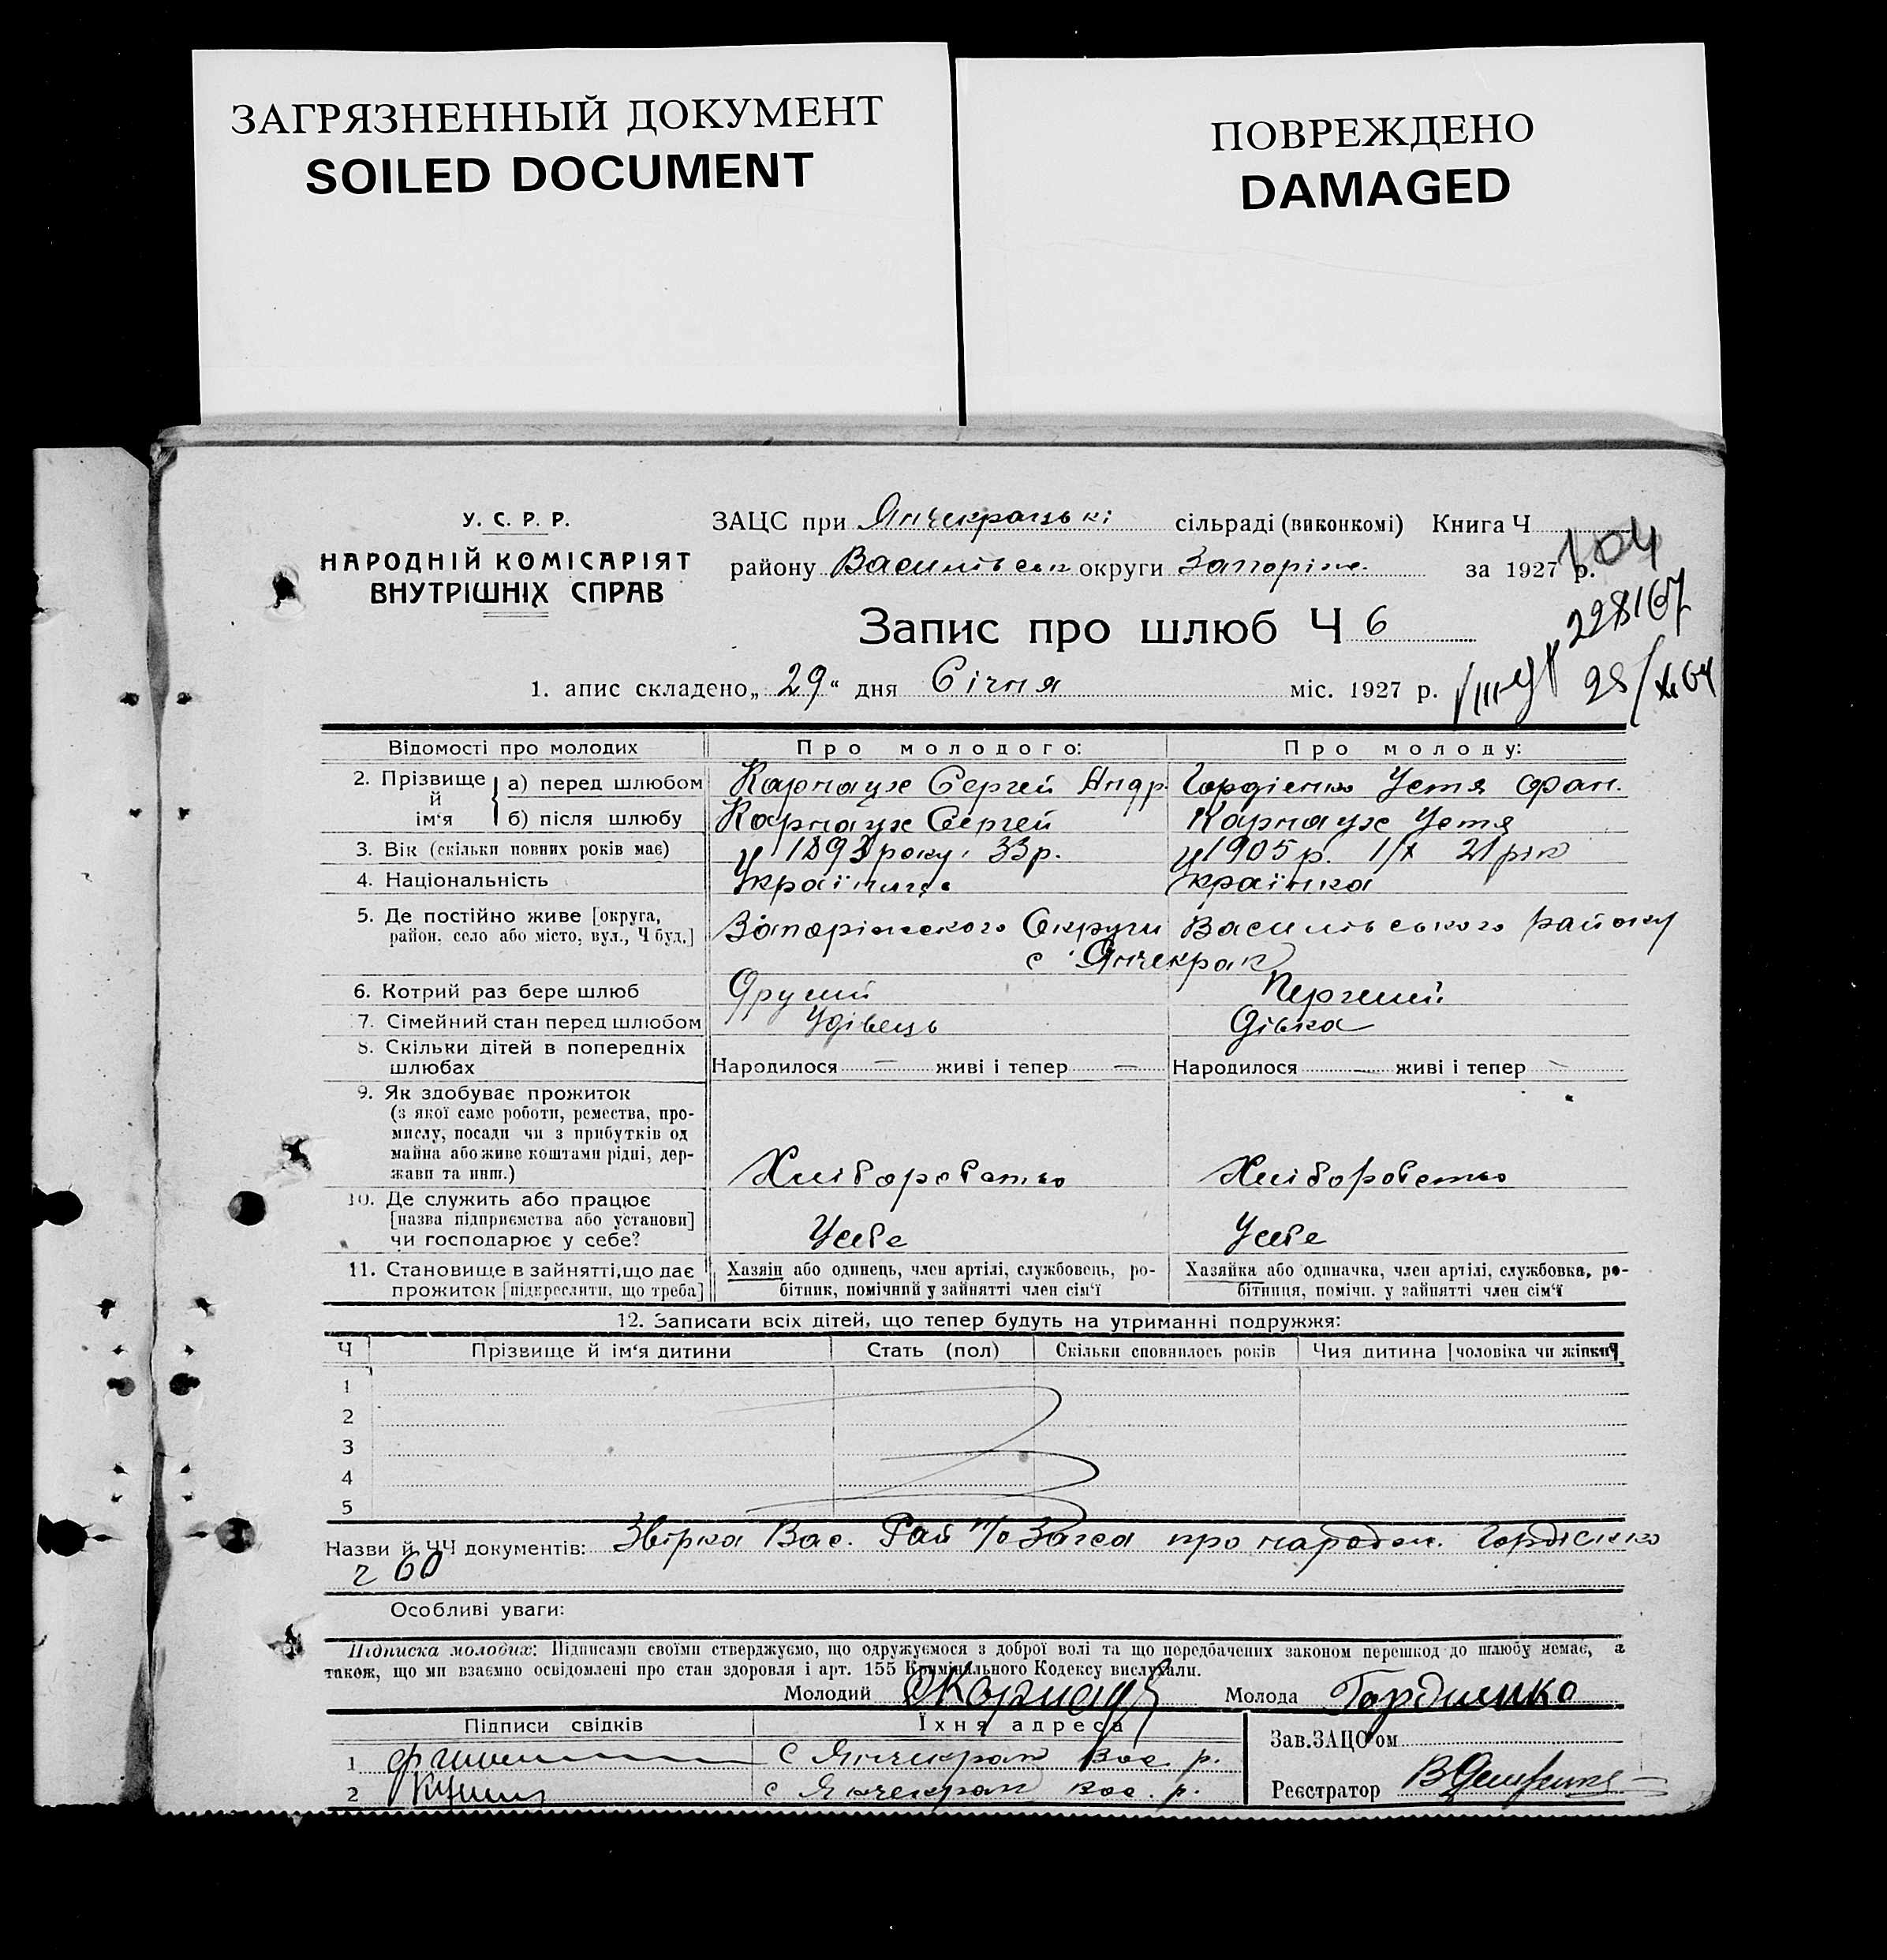 ЗАГРЯЗНЕННЫЙ ДОКУМЕНТ
SOILED DOCUMENT
ПОВРЕЖДЕНО
DAMAGED
У. С. Р. Р.
НАРОДНІЙ КОМІСАРІЯТ
ВНУТРІШНІХ СПРАВ
ЗАЦС при Янчекрацькі сільраді (виконкомі) Книга Ч
району Васильівськ округи Запоріж. за 1927 р.
104
Запис про шлюб Ч 6
228167
1. апис складено „29“ дня Січня міс. 1927 р.
Відомості про молодих Про молодого: Про молоду:
2. Прізвище й ім‘я а) перед шлюбом Карнаух Сергей Андр. Гордієнко Устя Фан.
б) після шлюбу Карнаух Сергей Карнаух Устя
3. Вік (скільки повних років має) у 1893 року. 33 р. у 1905 р. 1/X 21 рік
4. Національність Українець Українка
5. Де постійно живе [округа, район, село або місто, вул., Ч буд.] Запоріжського Округи Васильівського району
с Янчекрак
6. Котрий раз бере шлюб Другий Перший
7. Сімейний стан перед шлюбом Удівець Дівка
8. Скільки дітей в попередніх шлюбах Народилося — живі і тепер — Народилося — живі і тепер —
9. Як здобуває прожиток
(з якої саме роботи, ремества, про-
мислу, посади чи з прибутків од
майна або живе коштами рідні, дер-
жави та инш.) Хліборобство Хліборобство
10. Де служить або працює
[назва підприємства або установи]
чи господарює у себе? Усебе Усебе
11. Становище в зайнятті, що дає прожиток [підкреслити, що треба]
Хазяін або одинець, член артілі, службовець, ро-
бітник, помічний у зайнятті член сім‘ї
Хазяйка або одиначка, член артілі, службовка, ро-
бітниця, помічн. у зайнятті член сім‘ї
12. Записати всіх дітей, що тепер будуть на утриманні подружжя:
Ч Прізвище й ім‘я дитини Стать (пол) Скільки сповнилось років Чия дитина [чоловіка чи жінки]
1
2
3
4
5
Назви й ЧЧ документів: Звірка Вас. Рай п/о Загса про народж. Гордієнко
ч 60
Особливі уваги:
Підписка молодих: Підписами своїми стверджуємо, що одружуємося з доброї волі та що передбачених законом перешкод до шлюбу немає, а
також, що ми взаємно освідомлені про стан здоровля і арт. 155 Кримінального Кодексу вислухали.
Молодий СКарнаух Молода Гордиенко
Підписи свідків Їхня адреса Зав. ЗАЦС‘ом
1 с Янчекрак Вас. р.
2 с Янчекрак Вас. р. Реєстратор